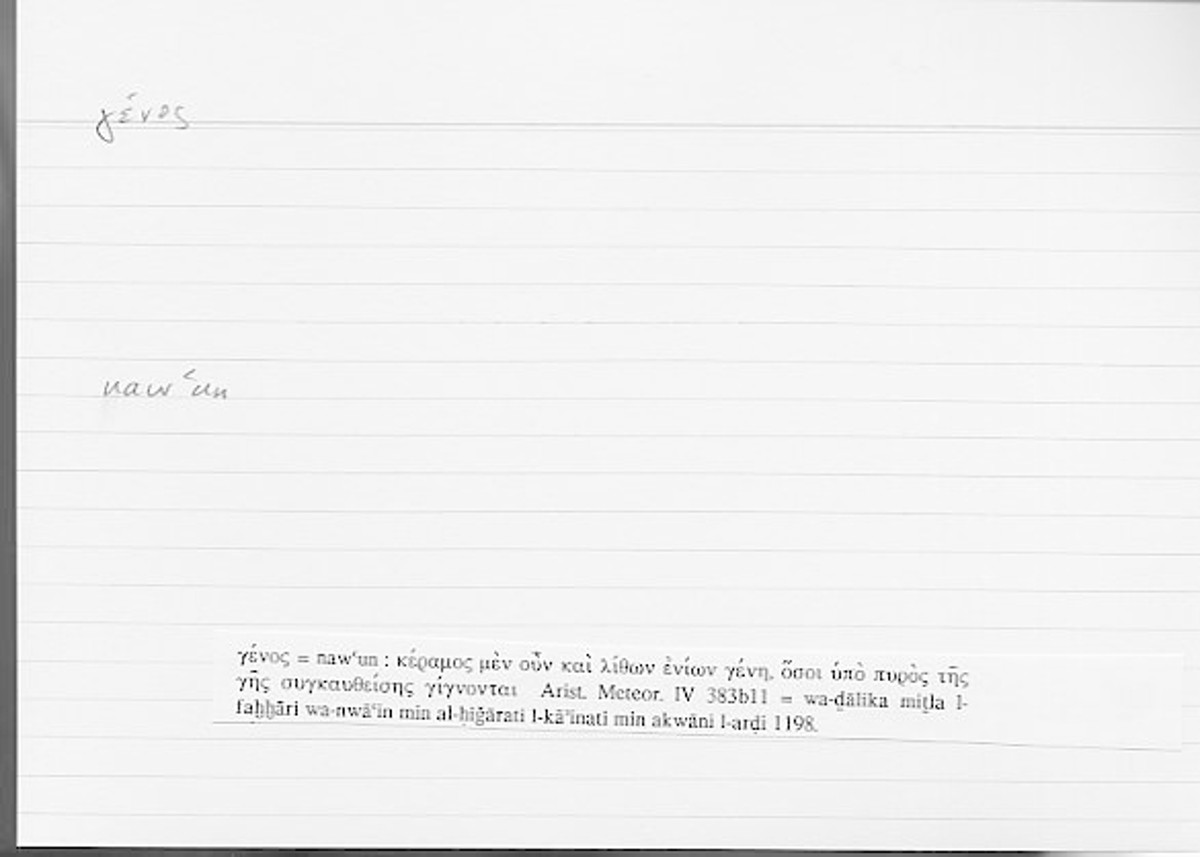 γένος
nawʿun
γένος = nawʿun : κέραμος μὲν οὖν καὶ λίθων ἐνίων γένη, ὅσοι ὑπὸ πυρὸς τῆς
γῆς συγκαυθείσης γίγνονται Arist. Meteor. IV 383b11 = wa-ḏālika miṯla l-
faḫḫāri wa-nwāʿin min al-ḥiǧārati l-kāʾinati min akwāni l-arḍi 1198.